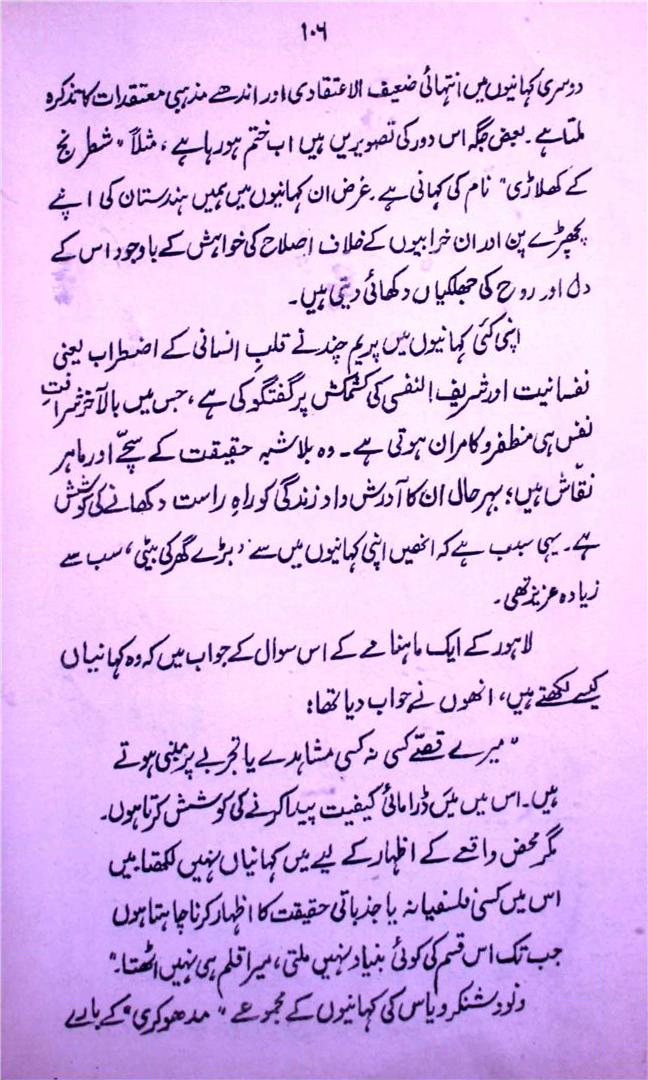 ۱۰۶
دوسری کہانیوں میں انتہائی ضعیف الاعتقادی اور اندھے مذہبی معتقدات کا تذکرہ
ملتا ہے۔ بعض جگہ اس دور کی تصویریں ہیں اب ختم ہو رہا ہے، مثلاً "شطرنج
کے کھلاڑی" نام کی کہانی ہے۔ غرض ان کہانیوں میں ہمیں ہندستان کی اپنے
پچھڑے پن اور ان خرابیوں کے خلاف اصلاح کی خواہش کے باوجود اس کے
دل اور روح کی جھلکیاں دکھائی دیتی ہیں۔
اپنی کئی کہانیوں میں پریم چند نے قلبِ انسانی کے اضطراب یعنی
نفسانیت اور شریف النفسی کی کشمکش پر گفتگو کی ہے، جس میں بالآخر شرافتِ
نفس ہی مظفر و کامران ہوتی ہے۔ وہ بلا شبہ حقیقت کے سچّے اور ماہر
نقّاش ہیں؛ بہر حال ان کا آدرش واد زندگی کو راہِ راست دکھانے کی کوشش
ہے۔ یہی سبب ہے کہ انھیں اپنی کہانیوں میں سے 'بڑے گھر کی بیٹی' سب سے
زیادہ عزیز تھی۔
لاہور کے ایک ماہنامے کے اس سوال کے جواب میں کہ وہ کہانیاں
کیسے لکھتے ہیں، انھوں نے جواب دیا تھا:
"میرے قصّے کسی نہ کسی مشاہدے یا تجربے پر مبنی ہوتے
ہیں۔ اس میں میَں ڈرامائی کیفیت پیدا کرنے کی کوشش کرتا ہوں۔
مگر محض واقعے کے اظہار کے لیے میں کہانیاں نہیں لکھتا۔ میں
اس میں کسی فلسفیانہ یا جذباتی حقیقت کا اظہار کرنا چاہتا ہوں
جب تک اس قسم کی کوئی بنیاد نہیں ملتی، میرا قلم ہی نہیں اٹھتا۔"
ونود شنکر ویاس کی کہانیوں کے مجموعے "مدھوکری" کے بارے